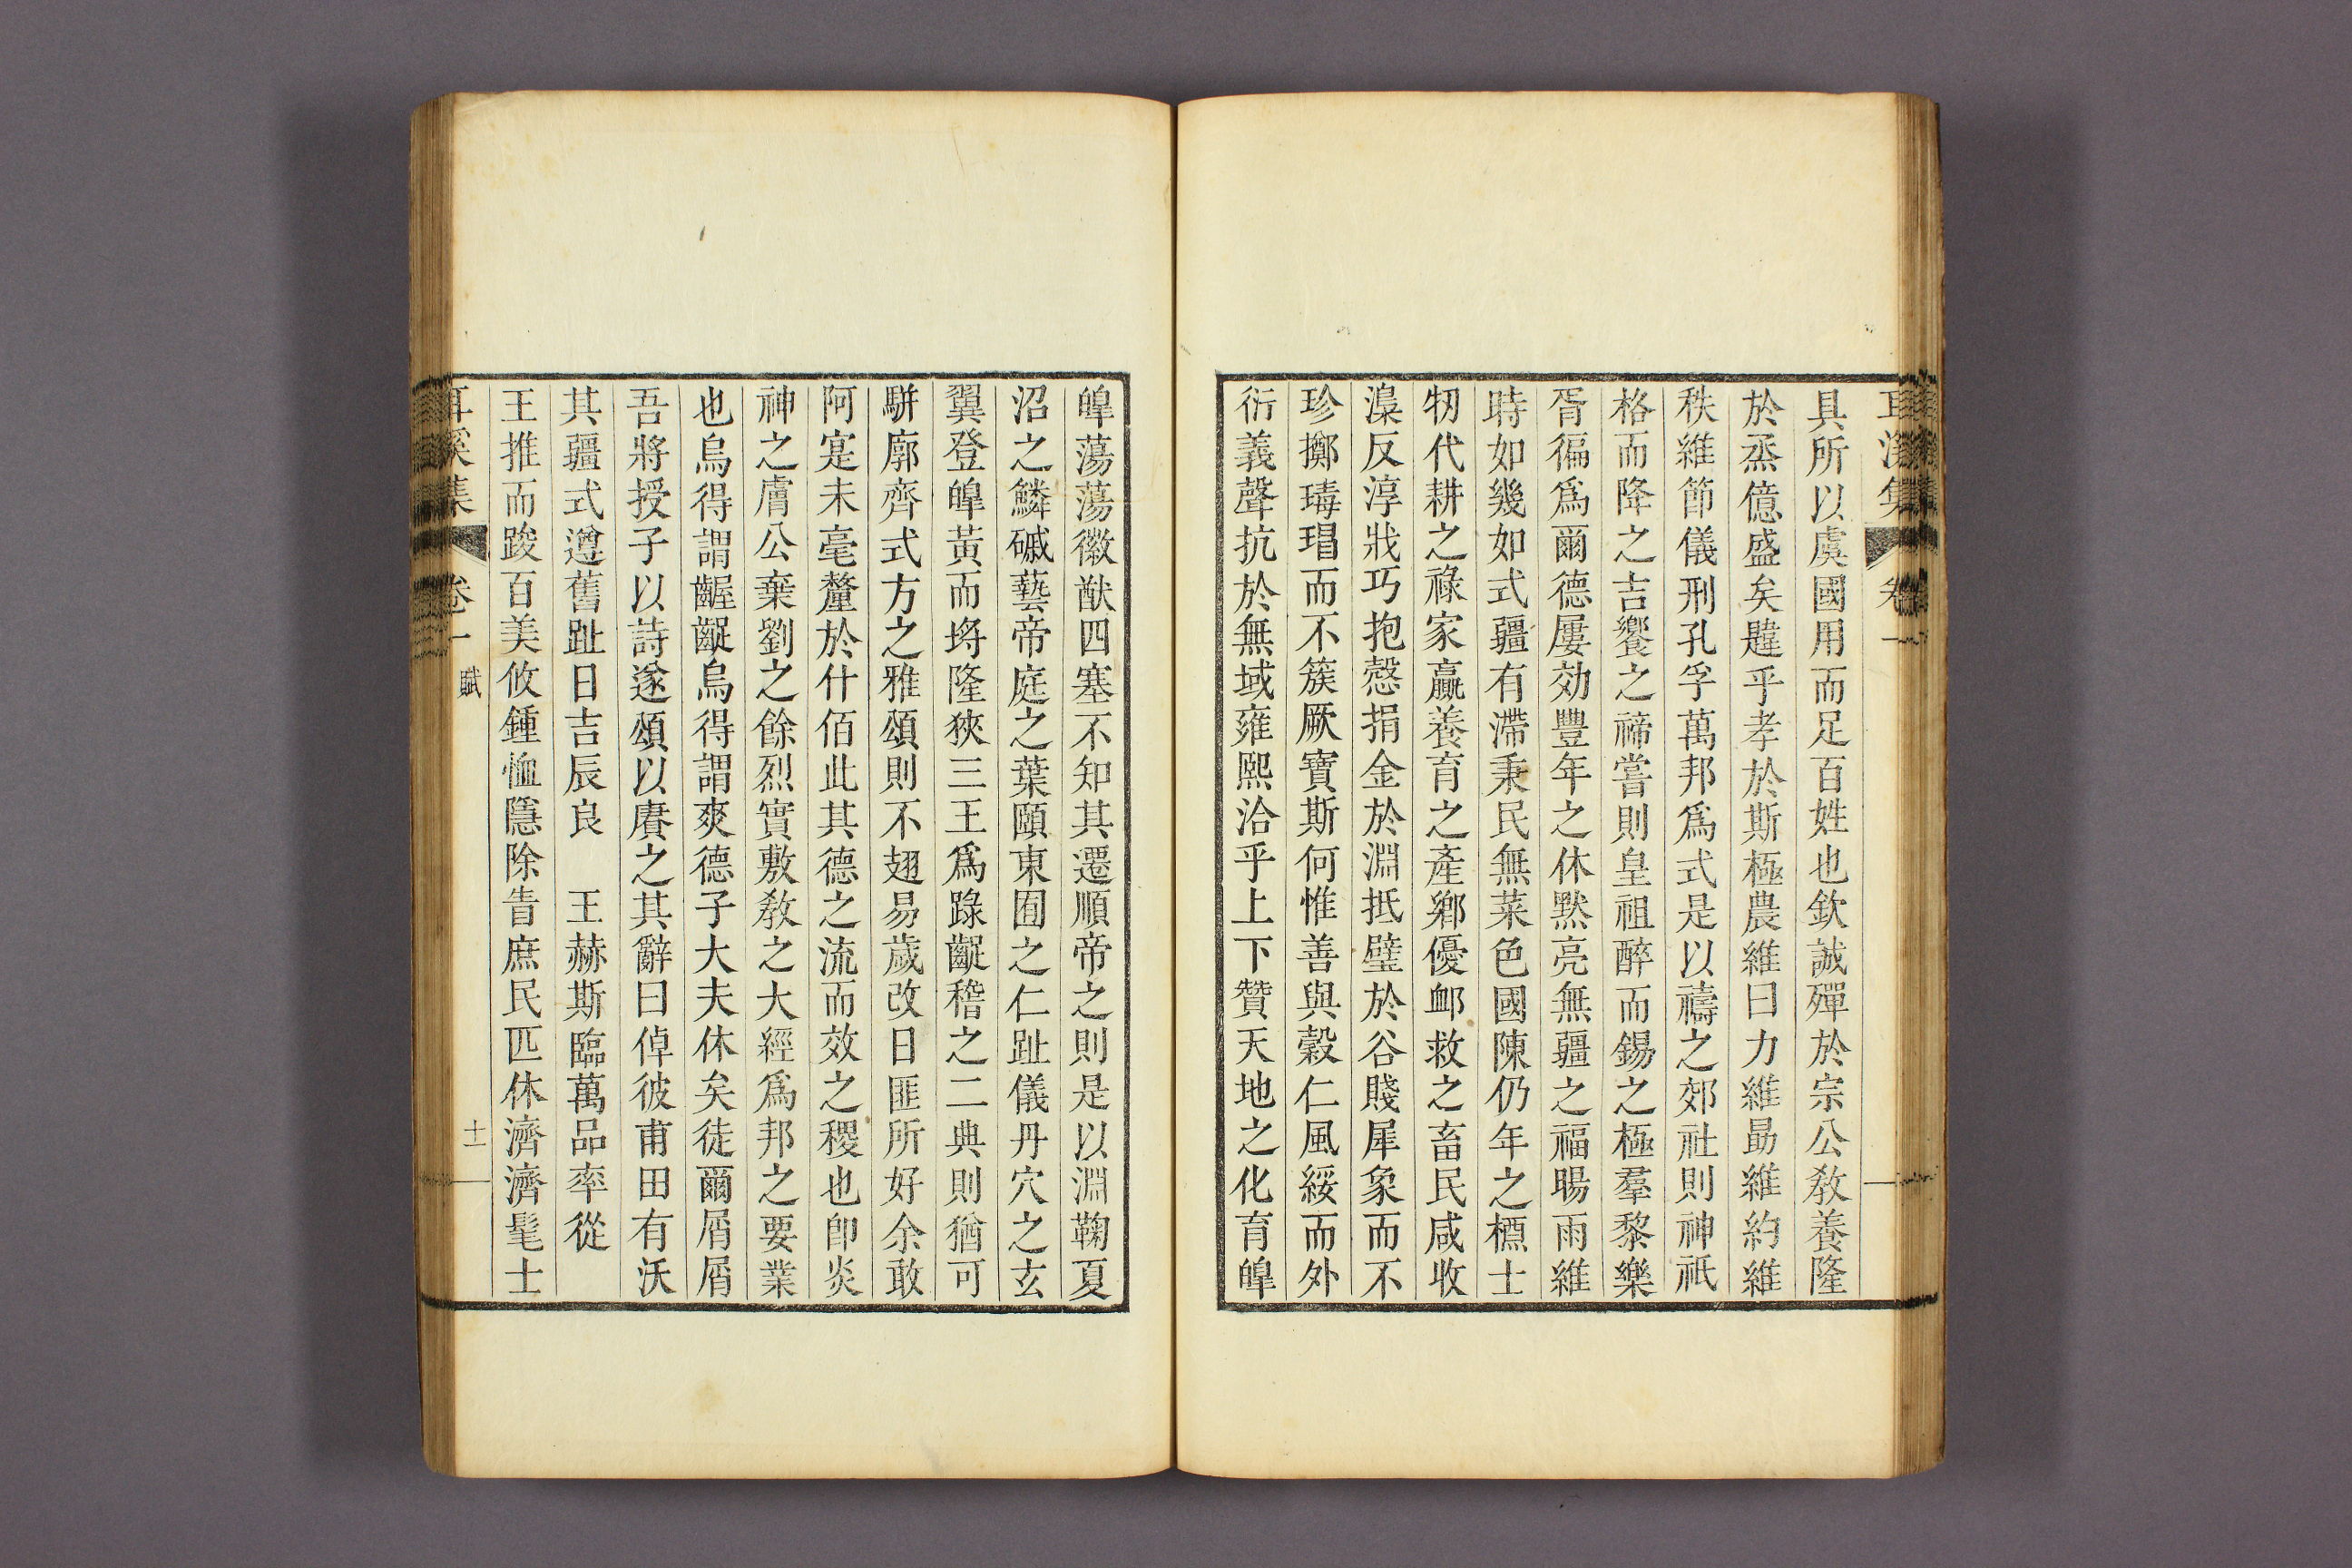 耳溪集 卷一
具所以虞國用而足百姓也欽誠殫於宗公敎養隆
於烝億盛矣韙乎孝於斯極農維曰力維勗維約維
秩維節儀刑孔孚萬邦爲式是以禱之郊社則神祇
格而降之吉饗之禘嘗則皇祖醉而錫之極羣黎樂
胥徧爲爾德屢効豐年之休黙亮無疆之福暘雨維
時如幾如式疆有滯秉民無菜色國陳仍年之標士
牣代耕之祿家贏養育之產鄕優卹救之畜民咸收
澡反淳戕巧抱慤捐金於淵抵璧於谷賤犀象而不
珍擲瑇瑁而不簇厥寶斯何惟善與穀仁風綏而外
衍義聲抗於無域雍熙洽乎上下贊天地之化育皥
皥蕩蕩徽猷四塞不知其遷順帝之則是以淵鞠夏
沼之鱗磩藝帝庭之葉頤東囿之仁趾儀丹穴之玄
翼登皥黃而埒隆狹三王爲踛齪稽之二典則猶可
駢廓齊式方之雅頌則不翅易歲改日匪所好余敢
阿寔未毫釐於什佰此其德之流而效之稷也卽炎
神之膚公棄劉之餘烈實敷敎之大經爲邦之要業
也烏得謂齷齪烏得謂爽德子大夫休矣徒爾屑屑
吾將授子以詩遂頌以賡之其辭曰倬彼甫田有沃
其疆式遵舊趾日吉辰良　王赫斯臨萬品率從
王推而踆百美攸鍾恤隱除眚庶民匹休濟濟髦士
耳溪集 卷一 賦 十二